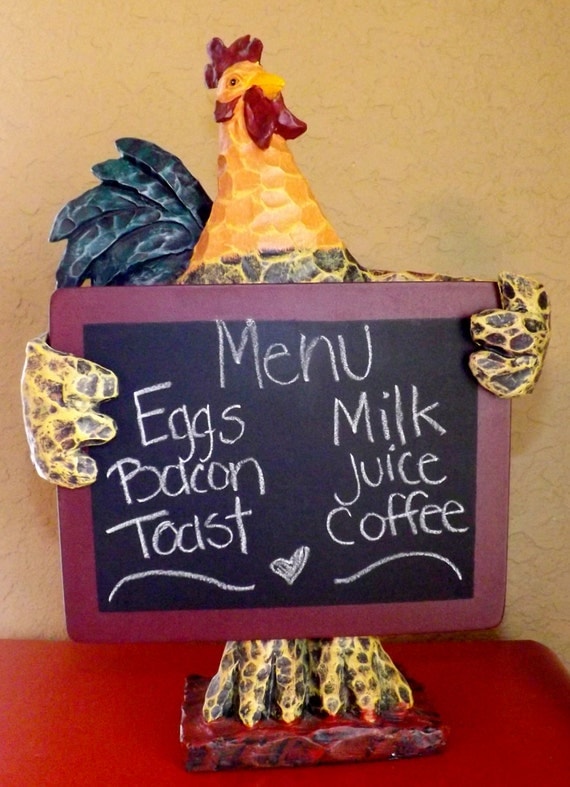 Menu
Eggs
Bacon
Toast
Milk
Juice
Coffee